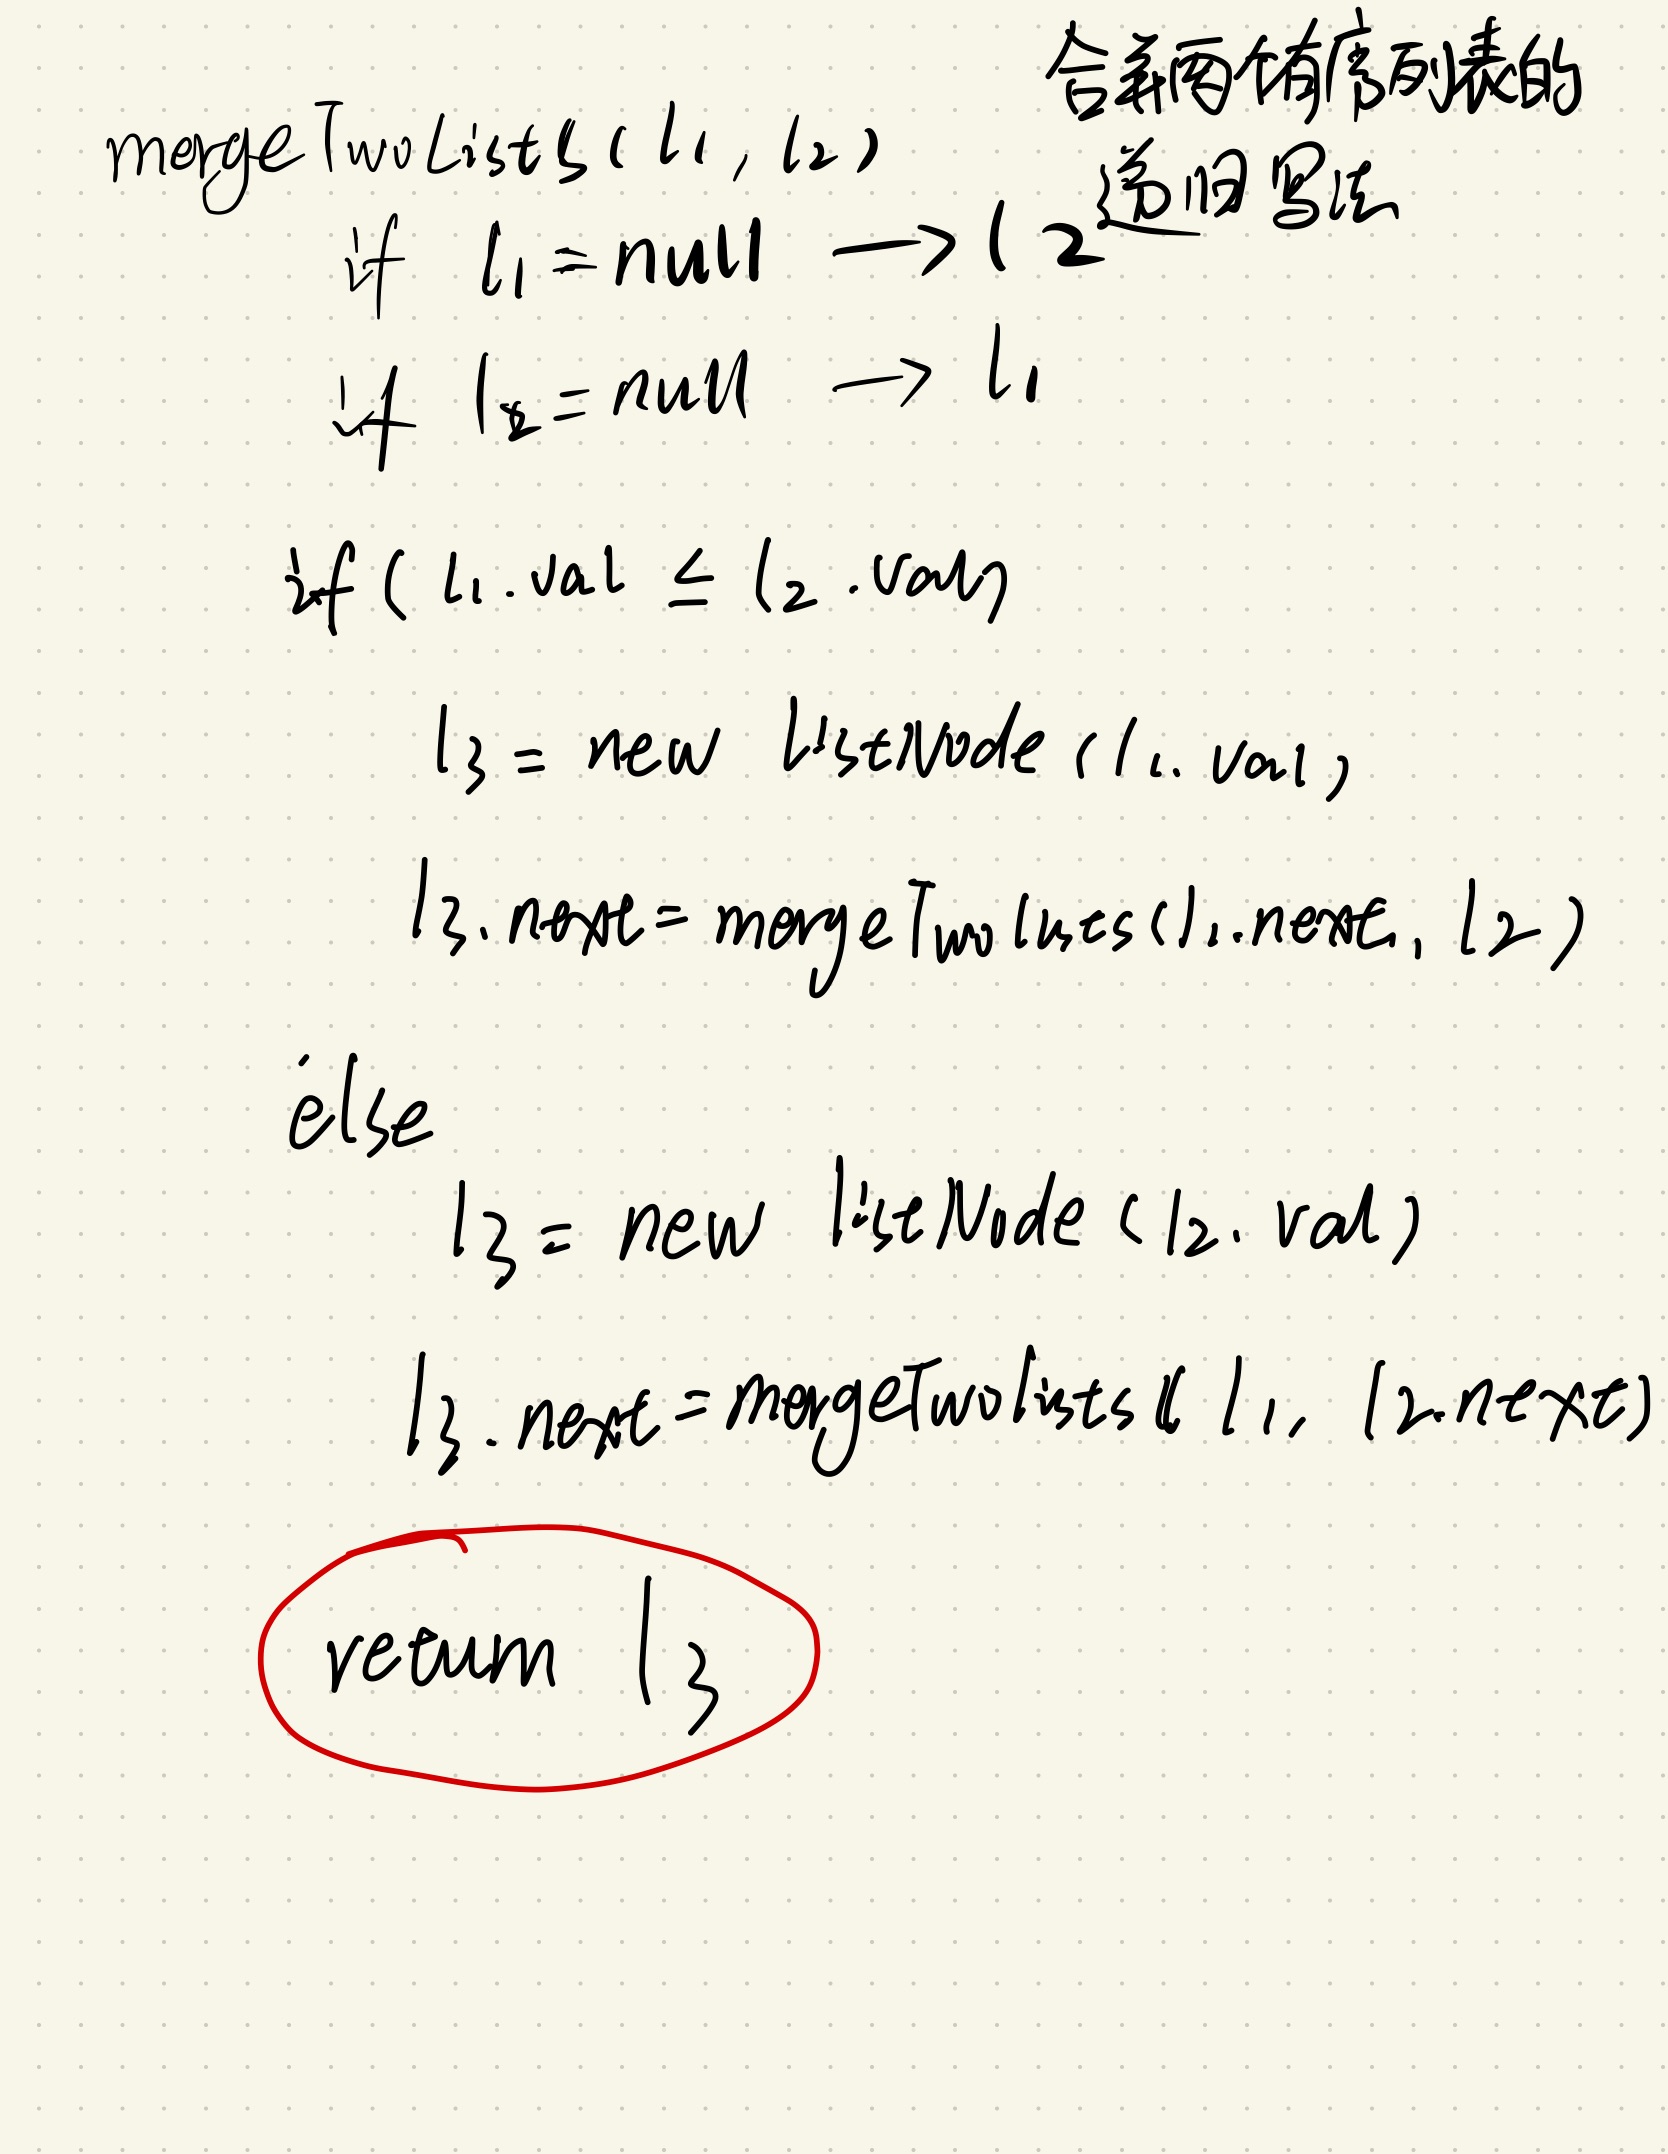 合并两个有序列表的
递归写法
mergeTwoLists(l1, l2)
if l1=null → l2
if l2=null → l1
if(l1.val ≤ l2.val)
l3 = new listNode(l1.val)
l3.next=mergeTwolists(l1.next, l2)
else
l3 = new listNode(l2.val)
l3.next=mergeTwolists(l1, l2.next)
return l3